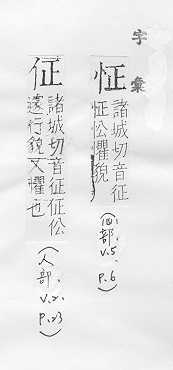 字彙
怔
諸城切音征
怔忪懼貌
(心部, V.5, P.6)
佂
諸城切音征佂伀
遽行貌又懼也
(人部, V.2, P.23)